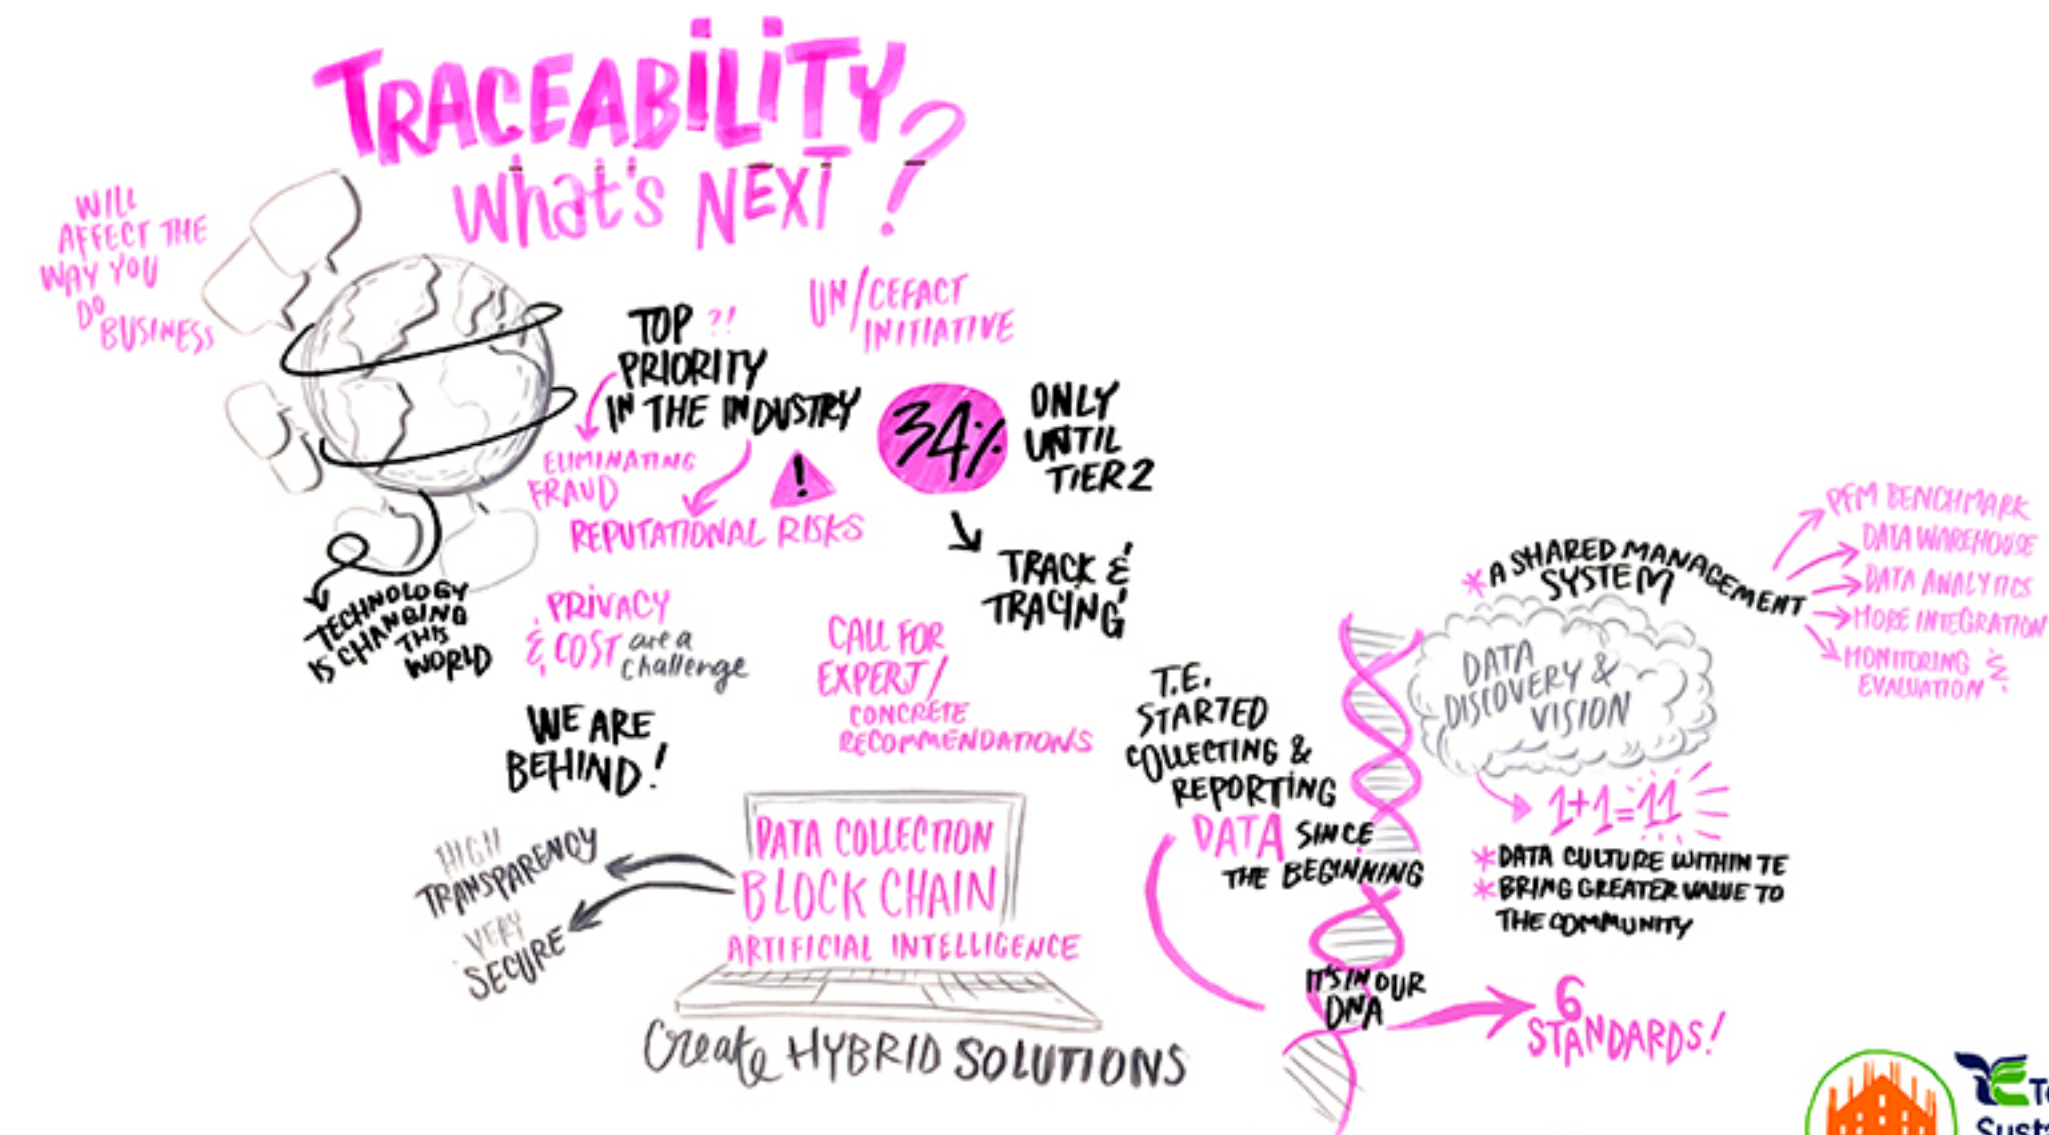 TRACEABILITY
What's NEXT?
WILL
AFFECT THE
WAY YOU
DO
BUSINESS
TOP ?!
PRIORITY
IN THE INDUSTRY
ELIMINATING
FRAUD
REPUTATIONAL RISKS
!
UN/CEFACT
INITIATIVE
34%
ONLY
UNTIL
TIER 2
TRACK &
TRACING
TECHNOLOGY
IS CHANGING
THIS
WORLD
PRIVACY
& COST are a
challenge
WE ARE
BEHIND!
CALL FOR
EXPERT/
CONCRETE
RECOMMENDATIONS
HIGH
TRANSPARENCY
VERY
SECURE
DATA COLLECTION
BLOCK CHAIN
ARTIFICIAL INTELLIGENCE
Create HYBRID SOLUTIONS
T.E.
STARTED
COLLECTING &
REPORTING
DATA SINCE
THE BEGINNING
IT'S IN OUR
DNA
6
STANDARDS!
* A SHARED MANAGEMENT
SYSTEM
PFM BENCHMARK
DATA WAREHOUSE
DATA ANALYTICS
MORE INTEGRATION
MONITORING &
EVALUATION
DATA
DISCOVERY &
VISION
1+1=11
* DATA CULTURE WITHIN TE
* BRING GREATER VALUE TO
THE COMMUNITY
TE